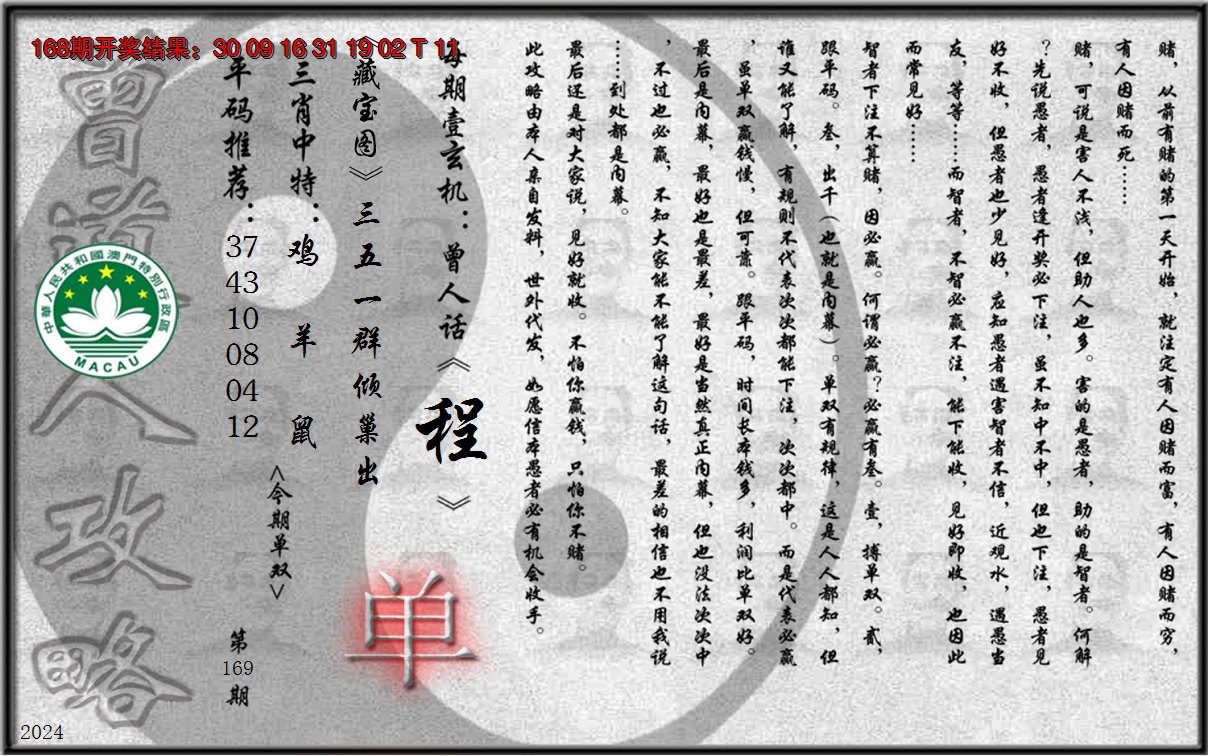 168期开奖结果：30 09 16 31 19 02 T 11
赌，从前有赌的第一天开始，就注定有人因赌而富，有人因赌而穷，
有人因赌而死……
赌，可说是害人不浅，但助人也多。害的是愚者，助的是智者。何解
？先说愚者，愚者逢开奖必下注，虽不知中不中，但也下注，愚者见
好不收，但愚者也少见好，应知愚者遇害智者不信，近观水，遇愚当
友，等等……而智者，不智必赢不注，能下能收，见好即收，也因此
而常见好……
智者下注不算赌，因必赢。何谓必赢？必赢有叁。壹，搏单双。贰，
跟平码。叁，出千（也就是内幕）。单双有规律，这是人人都知，但
谁又能了解，有规则不代表次次都能下注，次次都中。而是代表必赢
，虽单双赢钱慢，但可靠。跟平码，时间长本钱多，利润比单双好。
最后是内幕，最好也是最差，最好是当然真正内幕，但也没法次次中
，不过也必赢，不知大家能不能了解这句话，最差的相信也不用我说
……到处都是内幕。
最后还是对大家说，见好就收。不怕你赢钱，只怕你不赌。
此攻略由本人亲自发料，世外代发，如愿信本愚者必有机会收手。
每期壹玄机：曾人话《程》
《藏宝图》三五一群倾巢出
单
三肖中特：鸡 羊 鼠
<今期单双>
平码推荐：
37
43
10
08
04
12
第
169
期
曾道人攻略
中華人民共和國澳門特別行政區
MACAU
2024